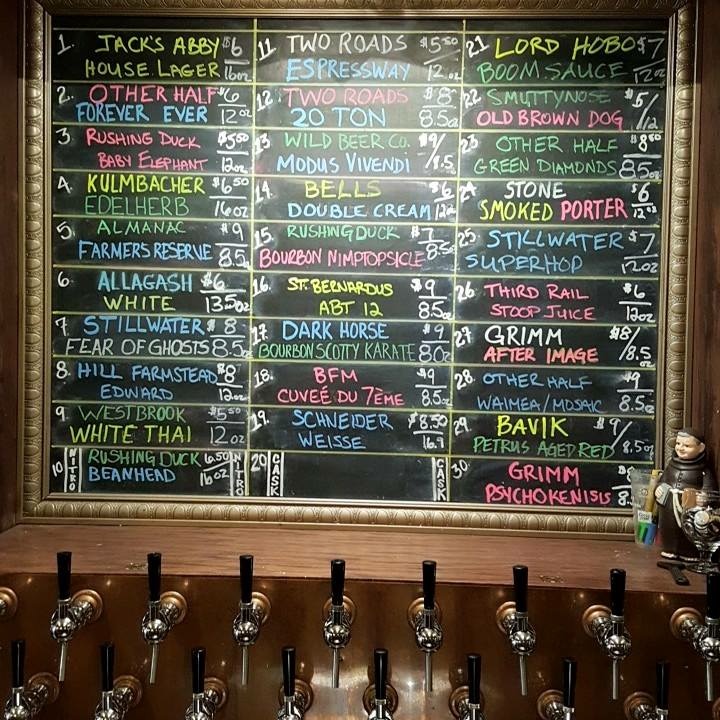 1. JACK'S ABBY $6
HOUSE LAGER 16oz
2. OTHER HALF $6
FOREVER EVER 12oz
3. RUSHING DUCK $5.50
BABY ELEPHANT 12oz
4. KULMBACHER $6.50
EDELHERB 16oz
5. ALMANAC $9
FARMERS RESERVE 8.5
6. ALLAGASH $6
WHITE 13.5oz
7. STILLWATER $8
FEAR OF GHOSTS 8.5oz
8. HILL FARMSTEAD $8
EDWARD 12oz
9. WESTBROOK $5.50
WHITE THAI 12oz
10 NITRO RUSHING DUCK 6.50 NITRO
BEANHEAD 16oz
11 TWO ROADS $5.50
ESPRESSWAY 12oz
12. TWO ROADS $8
20 TON 8.5oz
13 WILD BEER CO. $9/
MODUS VIVENDI 8.5
14. BELLS $6
DOUBLE CREAM 12oz
15 RUSHING DUCK $7
BOURBON NIMPTOPSICLE 8.5oz
16. ST. BERNARDUS $9
ABT 12 8.5oz
17. DARK HORSE $9
BOURBON SCOTTY KARATE 8oz
18. BFM $9
CUVEÉ DU 7ÈME 8.5oz
19. SCHNEIDER $8.50
WEISSE 16.9
20 CASK CASK
21 LORD HOBO $7
BOOM SAUCE 12oz
22 SMUTTYNOSE $5/
OLD BROWN DOG 12
23 OTHER HALF $8.50
GREEN DIAMONDS 8.5oz
24 STONE $6
SMOKED PORTER 12oz
25 STILLWATER $7
SUPERHOP 12oz
26 THIRD RAIL $6
STOOP JUICE 12oz
27 GRIMM $8/
AFTER IMAGE 8.5oz
28 OTHER HALF $9
WAIMEA/MOSAIC 8.5oz
29 BAVIK $9/
PETRUS AGED RED 8.5oz
30 GRIMM
PSYCHOKENISIS 8.